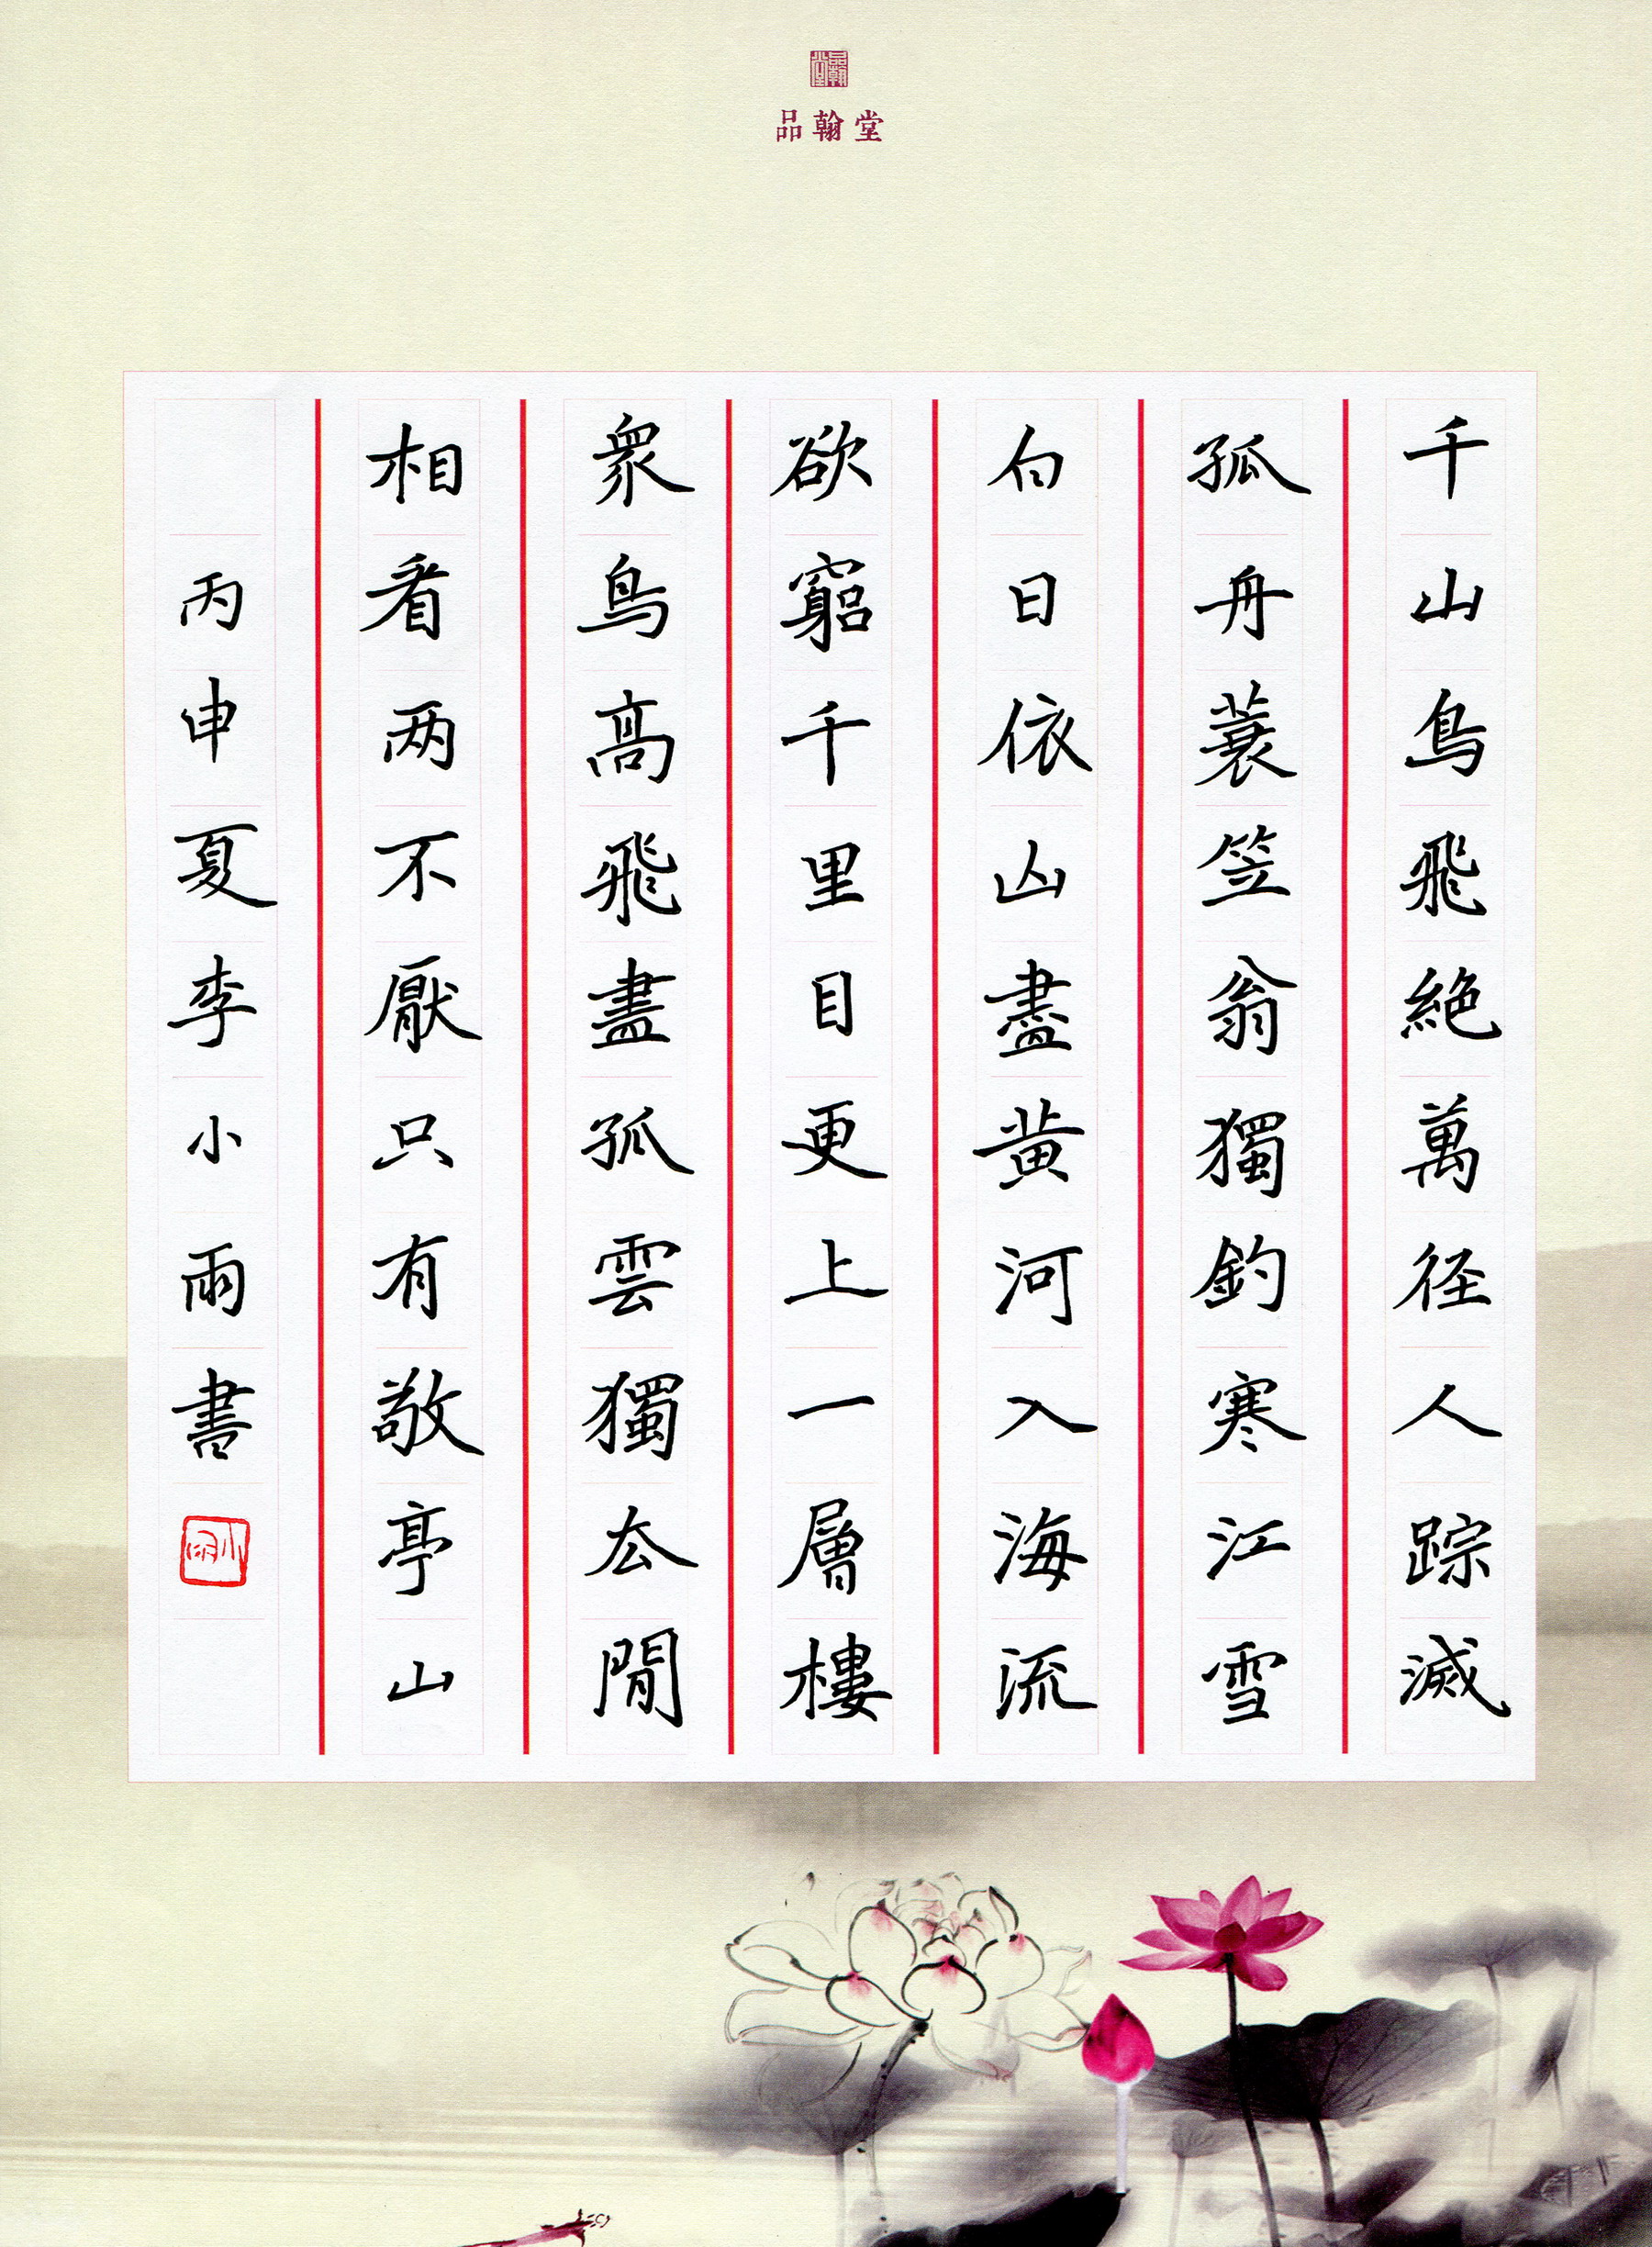 品翰堂
千山鳥飛絶萬径人踪滅
孤舟蓑笠翁獨釣寒江雪
白日依山盡黄河入海流
欲窮千里目更上一層樓
衆鳥高飛盡孤雲獨厺閒
相看两不厭只有敬亭山
丙申夏李小雨書
小雨